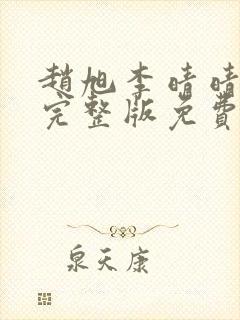 趙旭李晴晴
完整版免費
泉天康